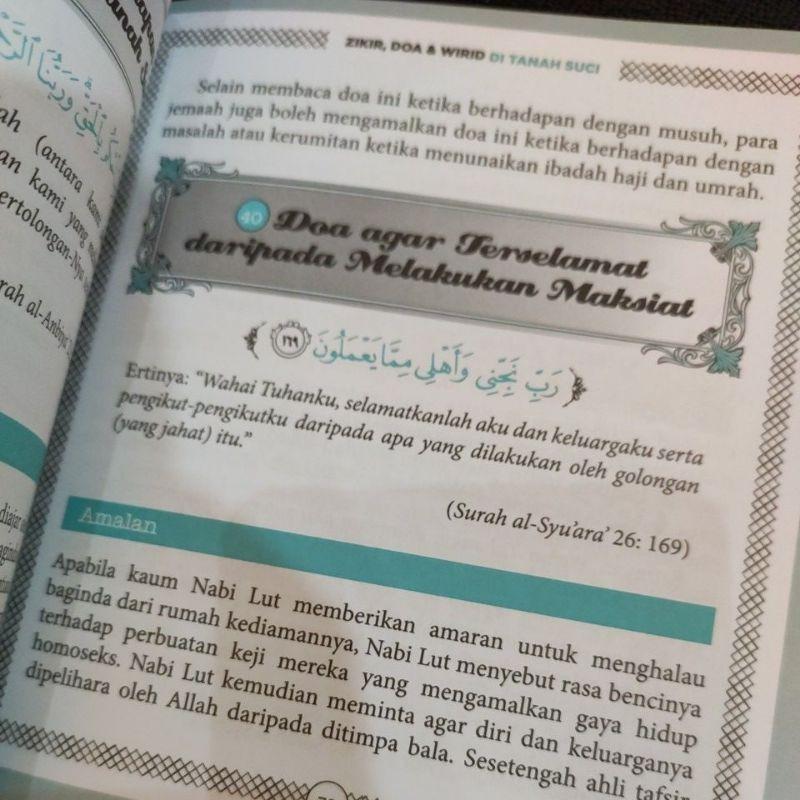 ZIKIR, DOA & WIRID DI TANAH SUCI
Selain membaca doa ini ketika berhadapan dengan musuh, para
jemaah juga boleh mengamalkan doa ini ketika berhadapan dengan
masalah atau kerumitan ketika menunaikan ibadah haji dan umrah.
40 Doa agar Terselamat
daripada Melakukan Maksiat
رَبِّ نَجِّنِى وَأَهْلِى مِمَّا يَعْمَلُونَ ١٦٩
Ertinya: “Wahai Tuhanku, selamatkanlah aku dan keluargaku serta
pengikut-pengikutku daripada apa yang dilakukan oleh golongan
(yang jahat) itu.”
(Surah al-Syu’ara’ 26: 169)
Amalan
Apabila kaum Nabi Lut memberikan amaran untuk menghalau
baginda dari rumah kediamannya, Nabi Lut menyebut rasa bencinya
terhadap perbuatan keji mereka yang mengamalkan gaya hidup
homoseks. Nabi Lut kemudian meminta agar diri dan keluarganya
dipelihara oleh Allah daripada ditimpa bala. Sesetengah ahli tafsir